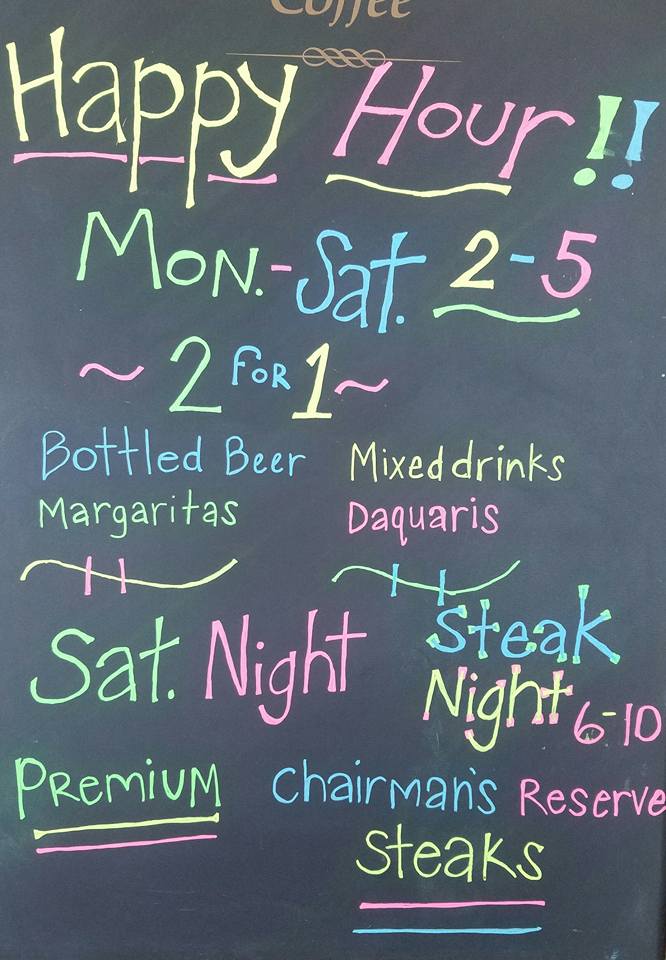 Coffee
Happy Hour!!
Mon.-Sat. 2-5
~ 2 FOR 1 ~
Bottled Beer Mixed drinks
Margaritas Daquaris
Sat. Night Steak
Night 6-10
PREMIUM Chairman's Reserve
Steaks